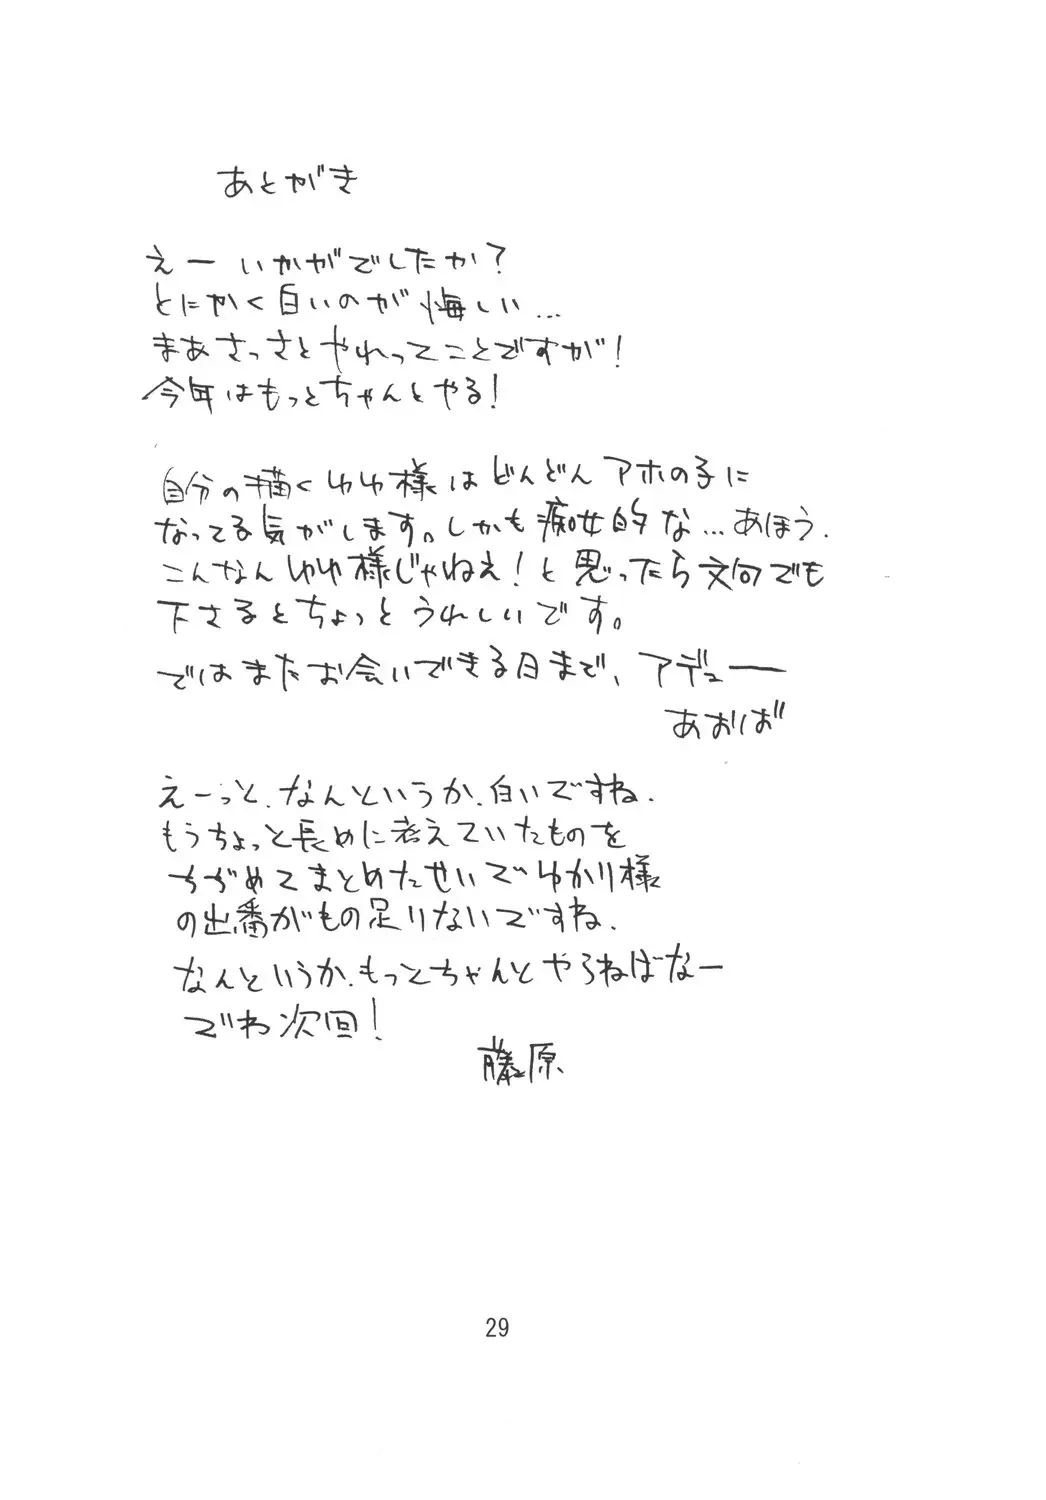 あとがき
えー いかがでしたか?
とにかく白いのが悔しい…
まあさっさとやれってことですが!
今年はもっとちゃんとやる!
自分の描くゆゆ様はどんどんアホの子に
なってる気がします。しかも痴女的な…あほう.
こんなんゆゆ様じゃねえ!と思ったら文句でも
下さるとちょっとうれしいです。
ではまたお会いできる日まで、アデュー
あおば
えーっと、なんというか、白いですね.
もうちょっと長めに考えていたものを
ちぢめてまとめたせいでゆかり様
の出番がもの足りないですね.
なんというか、もっとちゃんとやらねばなー
でわ次回!
藤原
29